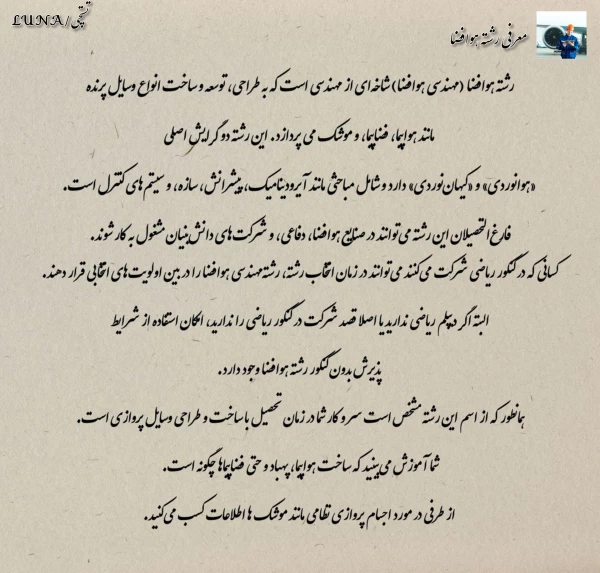 LUNA/تستچی
معرفی رشته هوافضا
رشته هوافضا (مهندسی هوافضا) شاخه‌ای از مهندسی است که به طراحی، توسعه و ساخت انواع وسایل پرنده
مانند هواپیما، فضاپیما، و موشک می پردازد. این رشته دو گرایش اصلی
«هوانوردی» و «کیهان‌نوردی» دارد و شامل مباحثی مانند آیرودینامیک، پیشرانش، سازه، و سیستم های کنترل است.
فارغ التحصیلان این رشته می‌توانند در صنایع هوافضا، دفاعی، و شرکت‌های دانش‌بنیان مشغول به کار شوند.
کسانی که در کنکور ریاضی شرکت می‌کنند می‌توانند در زمان انتخاب رشته، رشته مهندسی هوافضا را در بین اولویت‌های انتخابی قرار دهند.
البته اگر دیپلم ریاضی ندارید یا اصلا قصد شرکت در کنکور ریاضی را ندارید، امکان استفاده از شرایط
پذیرش بدون کنکور رشته هوافضا وجود دارد.
همانطور که از اسم این رشته مشخص است سر و کار شما در زمان تحصیل با ساخت و طراحی وسایل پروازی است.
شما آموزش می‌بینید که ساخت هواپیما، پهپاد و حتی فضاپیماها چگونه است.
از طرفی در مورد اجسام پروازی نظامی مانند موشک ها اطلاعات کسب می‌کنید.